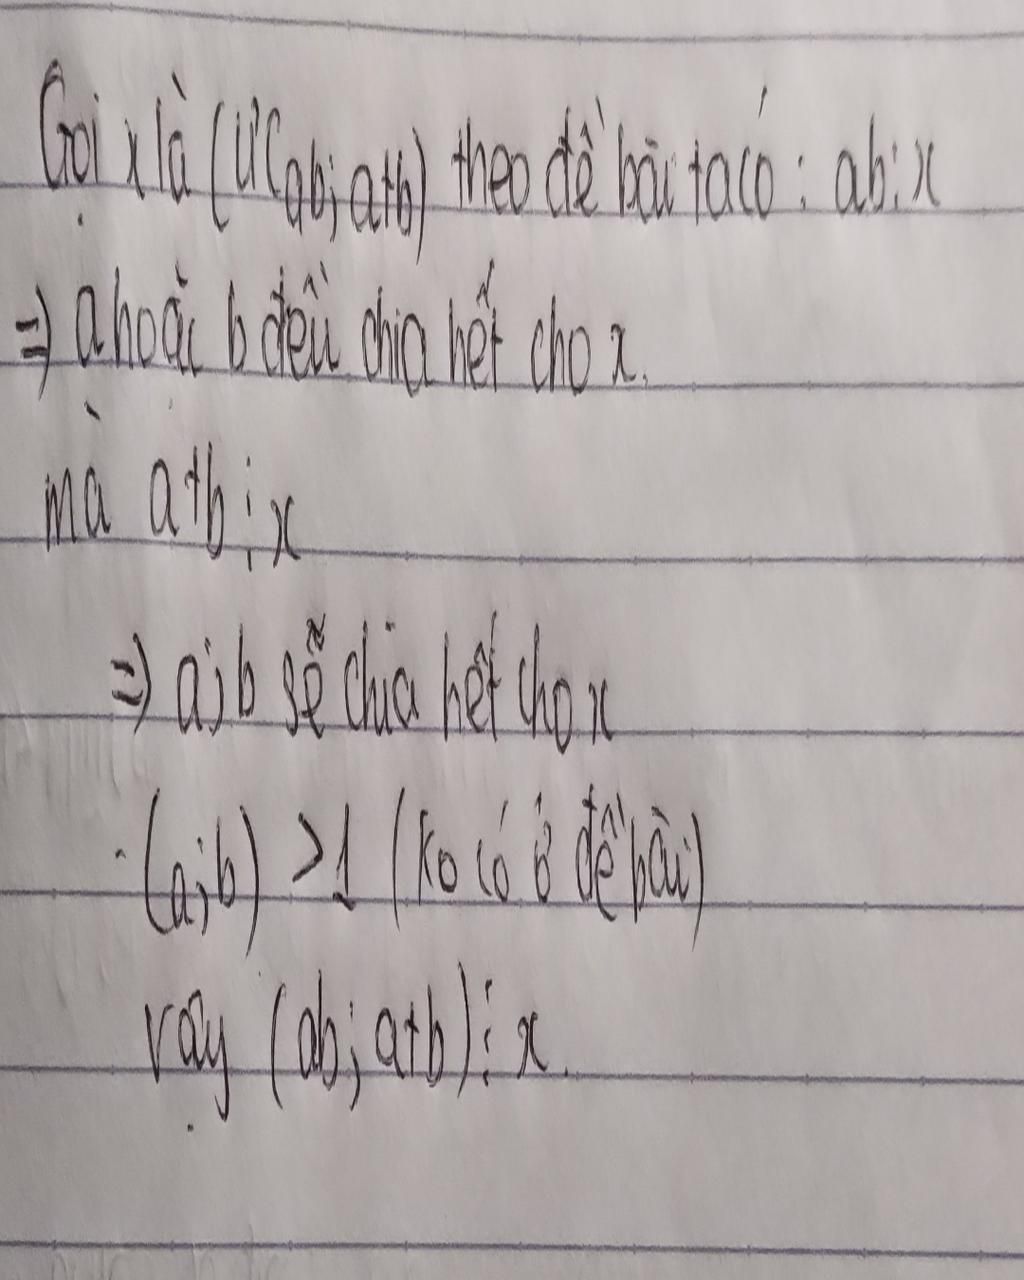 Gọi x là (ƯC ab; a+b) theo đề bài ta có : ab⋮x
=> a hoặc b đều chia hết cho x.
mà a+b ⋮ x
=> a;b sẽ chia hết cho x
(a;b) >1 (ko có ở đề bài)
vậy (ab; a+b) ⋮ x.